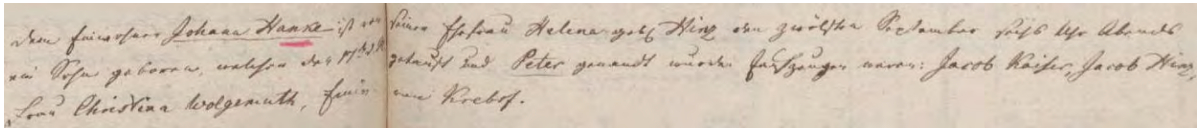 Dem Einwohner Johann Hanke ist von seiner Ehefrau Helena geb Hinz den zwölften September sechs Uhr Abends
ein Sohn geboren, welcher den getauft und Peter genandt wurden Taufzeugen waren: Jacob Kaiser, Jacob Hinz,
Frau Christina Wolgemuth, von Krebsf.